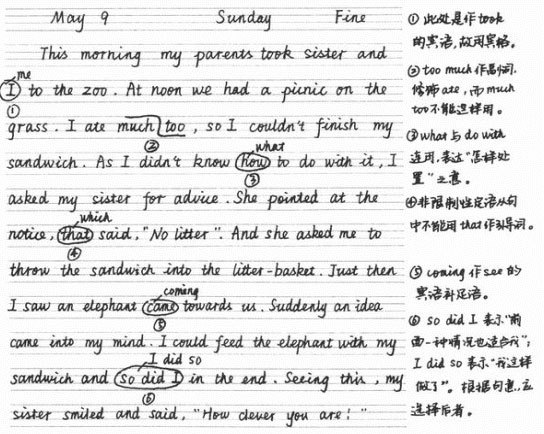 May 9 Sunday Fine
This morning my parents took sister and
me
I to the zoo. At noon we had a picnic on the
①
grass. I ate much too, so I couldn't finish my
②
what
sandwich. As I didn't know how to do with it, I
③
asked my sister for advice. She pointed at the
which
notice, that said, "No litter". And she asked me to
④
throw the sandwich into the litter-basket. Just then
coming
I saw an elephant came towards us. Suddenly an idea
⑤
came into my mind. I could feed the elephant with my
I did so
sandwich and so did I in the end. Seeing this, my
⑥
sister smiled and said, "How clever you are!"
① 此处是作took
的宾语,故用宾格。
② too much作副词,
修饰ate,而much
too不能这样用。
③ what与do with
连用,表达"怎样处
置"之意。
④ 非限制性定语从句
中不能用that作引导词。
⑤ coming作see的
宾语补足语。
⑥ so did I 表示"前
面一种情况也适合我";
I did so表示"我这样
做了"。根据句意,应
选择后者。